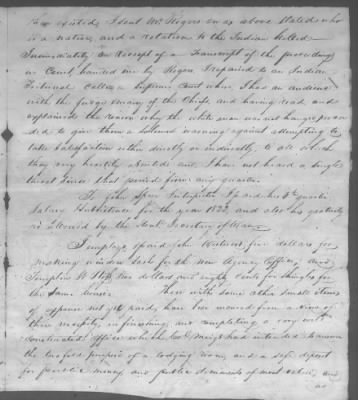 now existed, I sent Mr. Rogers on as above stated who
is a native, and a relation to the Indian killed
Immediately on receipt of a Transcript of the proceedings
in Court, handed me by Rogers I repaired to an Indian
Tribunal called a Supreme Court where I had an audience
with the judges & many of the Chiefs and having read and
explained the reason why the white man was not hanged proceed
ded to give them a solemn warning against attempting to
take satisfaction either directly or indirectly, to all which
they very heartily assented and I have not heard a single
threat since that period from any quarter.
To John Speer Interpreter I paid his 4th quarter
Salary & Subsistence for the year 1822, and also his gratuity
as allowed by the Hon. Secretary of War.
I employed & paid John five dollars for
making window sash for the new Agency Office, and
Templin W. Ross two dollars and eighty Cents for shingles for
the same house. These with some other small items
of expense not yet paid, have been incurred from a view of
their necessity in finishing, and completing a very well
constructed office which Col. Meigs had intended to answer
the twofold purpose of a lodging room and a safe deposit
for public money and public documents of most value, and
as